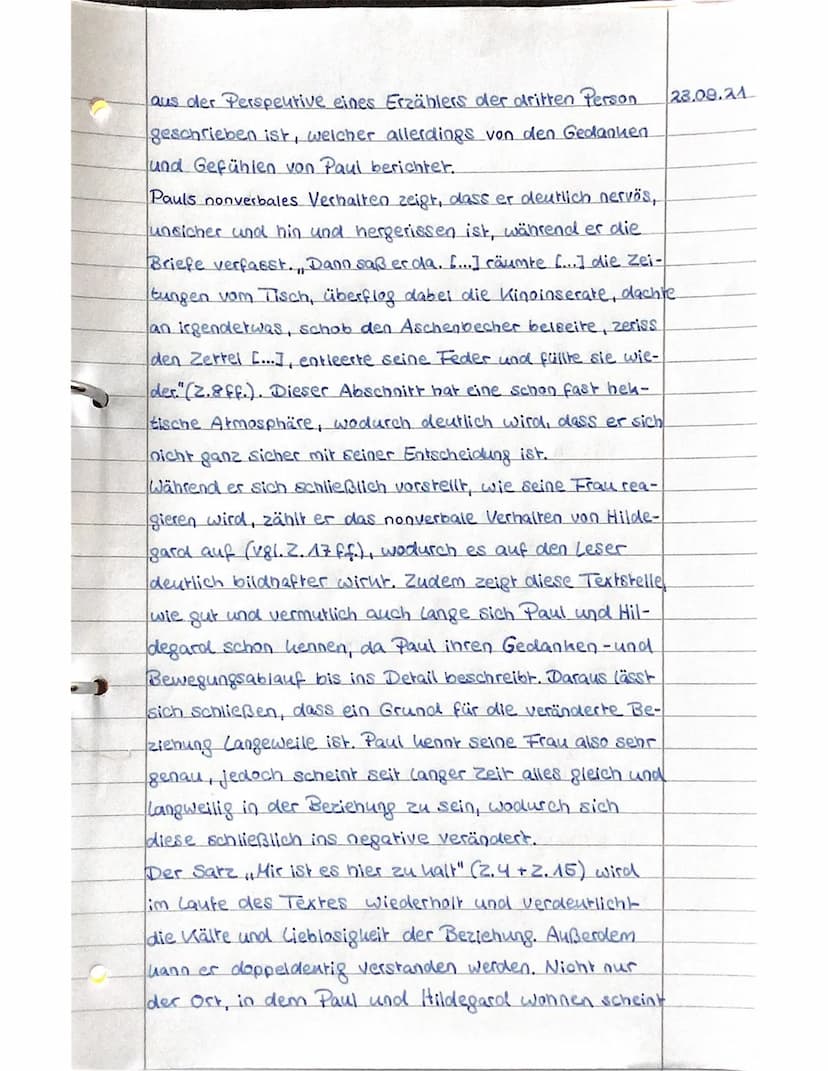 aus der Perspektive eines Erzählers der dritten Person 23.09.21
geschrieben ist, welcher allerdings von den Gedanken
und Gefühlen von Paul berichtet.
Pauls nonverbales Verhalten zeigt, dass er deutlich nervös,
unsicher und hin und hergerissen ist, während er die
Briefe verfasst. „Dann saß er da. [...] räumte [...] die Zei-
tungen vom Tisch, überflog dabei die Kinoinserate, dachte
an irgendetwas, schob den Aschenbecher beiseite, zeriss
den Zettel [...], entleerte seine Feder und füllte sie wie-
der." (Z.8ff.). Dieser Abschnitt hat eine schon fast hek-
tische Atmosphäre, wodurch deutlich wird, dass er sich
nicht ganz sicher mit seiner Entscheidung ist.
Während er sich schließlich vorstellt, wie seine Frau rea-
gieren wird, zählt er das nonverbale Verhalten von Hilde-
gard auf (vgl. Z. 17 ff.), wodurch es auf den Leser
deutlich bildhafter wirkt. Zudem zeigt diese Textstelle,
wie gut und vermutlich auch lange sich Paul und Hil-
degard schon kennen, da Paul ihren Gedanken-und
Bewegungsablauf bis ins Detail beschreibt. Daraus lässt
sich schließen, dass ein Grund für die veränderte Be-
ziehung Langeweile ist. Paul kennt seine Frau also sehr
genau, jedoch scheint seit langer Zeit alles gleich und
langweilig in der Beziehung zu sein, wodurch sich
diese schließlich ins negative verändert.
Der Satz „Mir ist es hier zu kalt" (Z.4 + Z. 15) wird
im Laufe des Textes wiederholt und verdeutlicht
die Kälte und Lieblosigkeit der Beziehung. Außerdem
kann er doppeldeutig verstanden werden. Nicht nur
der Ort, in dem Paul und Hildegard wohnen scheint